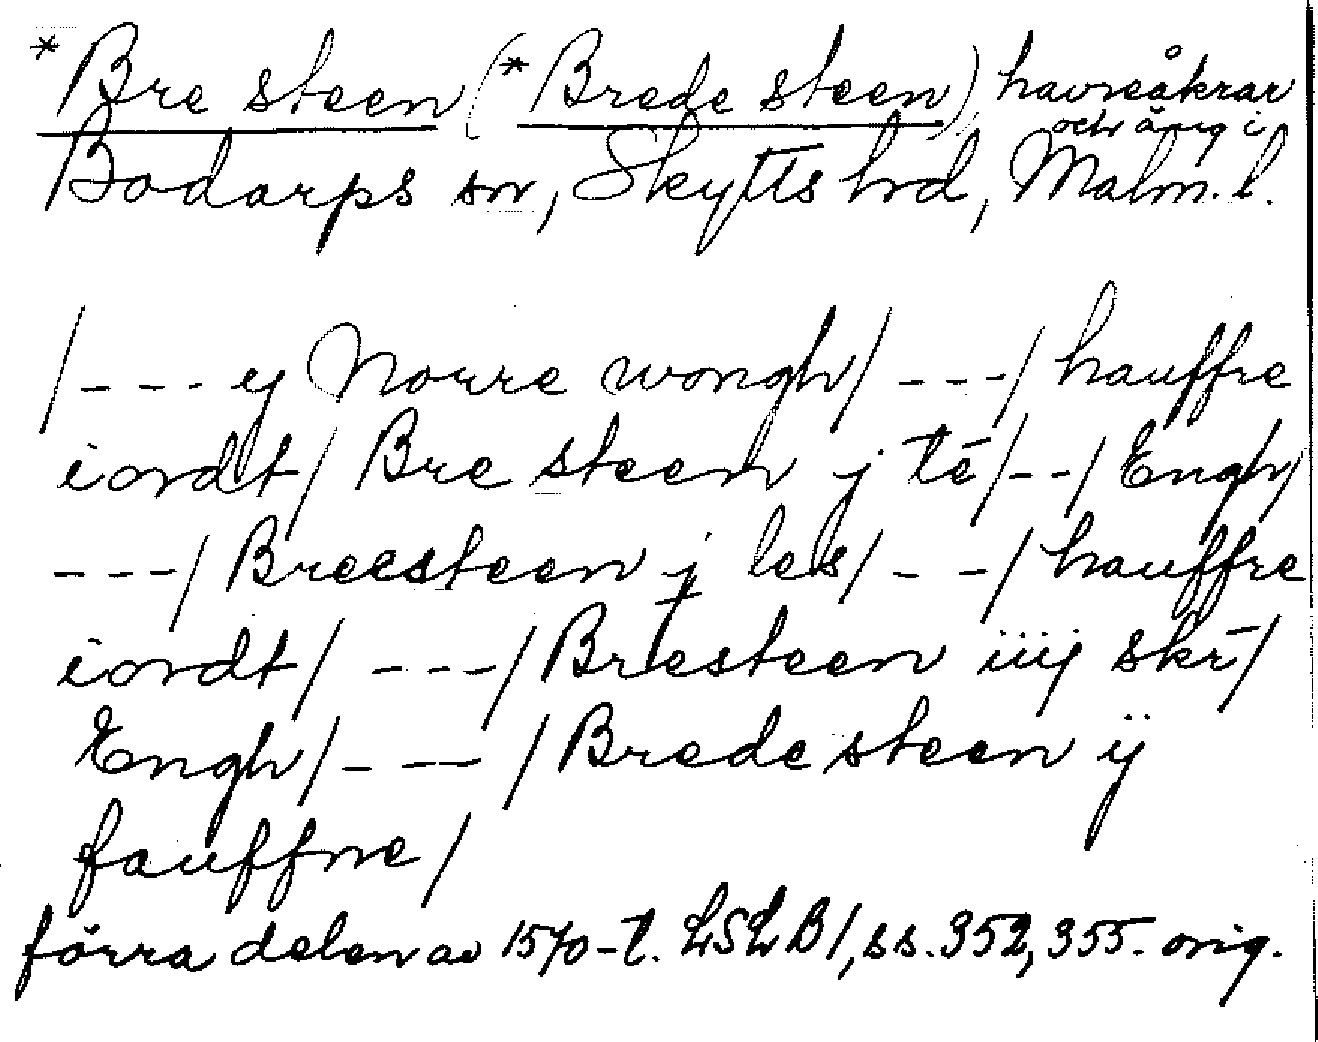 *Bre steen (*Brede steen), havreåkrar
och äng i
Bodarps sn, Skytts hrd, Malm. l.
/--- y Norre wongh/ ---/ hauffre
iordt/ Bre steen j tē/--/ Engh/
---/ Breesteen j les/ --/ hauffre
iordt/ ---/ Bresteen iiij skr̄/
Engh/ --- / Brede steen ij
fauffne/
förra delen av 1570-t. LSLB1, ss. 352, 355. orig.